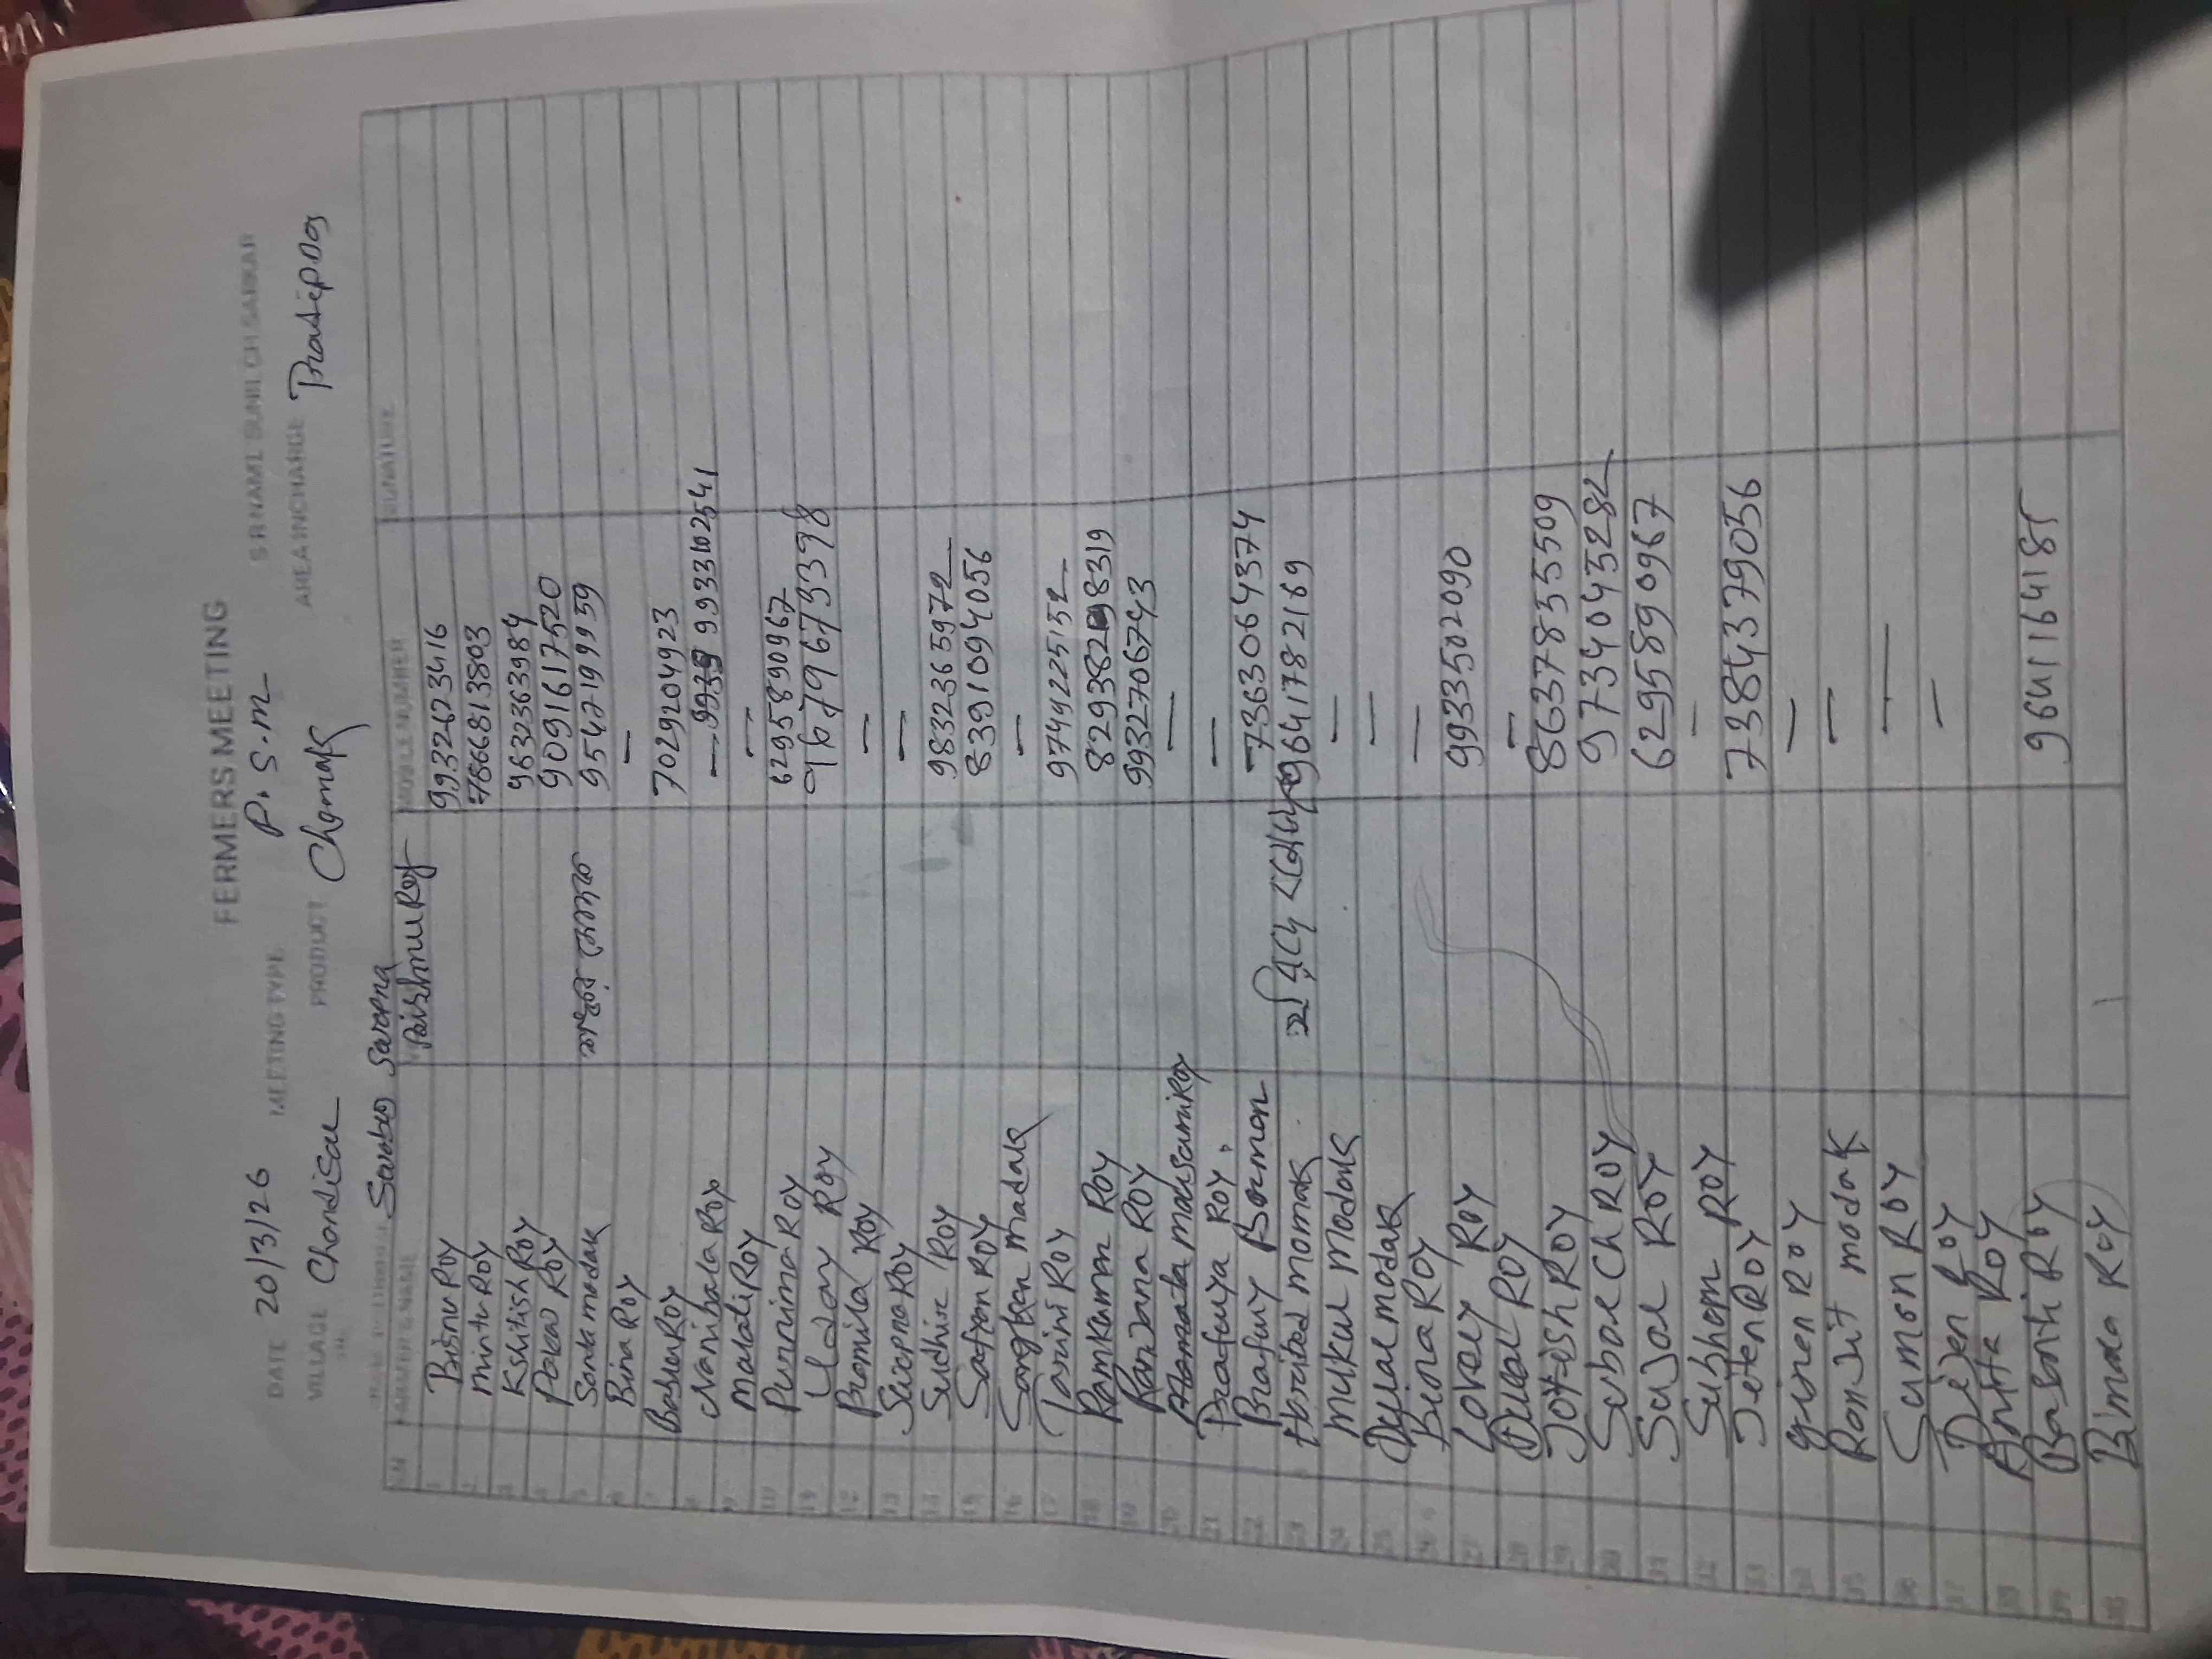 FERMERS MEETING
DATE 20/3/26 MEETING TYPE P.S.M SR NAME SUNIL CH SARKAR
VILLAGE Chondisal PRODUCT Chamak AREA INCHARGE Pradip Das
S.N FARMER'S NAME MOBILE NUMBER SIGNATURE
1 Bisnu Roy BishnuRoy 9932673416
2 mintu Roy 7866813803
3 Kshitish Roy 9632363984
4 9091617520
5 Santa modak 9547199959
6 Bina Roy —
7 7029204923
8 Nanibala Roy 9933102541
9 malati Roy —
10 Purnima Roy 6295890967
11 Uday Roy 9679673398
12 Promila Roy —
13 Swapna Roy —
14 Sudhir Roy 9832365972
15 8391094056
16 —
17 Tarini Roy 9749225152
18 Ramkuman Roy 8293829 8319
19 Ranjana Roy 9932706743
20 —
21 Prafulya Roy. —
22 Prafuly Barman 7363064374
23 9641782169
24 Mukul Modak —
25 Dulal modak —
26 Bina Roy —
27 Lovely Roy 9933502090
28 Dulal Roy —
29 Jotish Roy 8637835509
30 Subal Ch Roy 9734045282
31 Sujal Roy 6295890967
32 Subham Roy —
33 Jiten Roy 7384379056
34 Roy —
35 Ronjit modak —
36 Sumon Roy —
37 Dijen Roy —
38 Anita Roy
39 Basanti Roy 9641164185
40 Bimala Roy